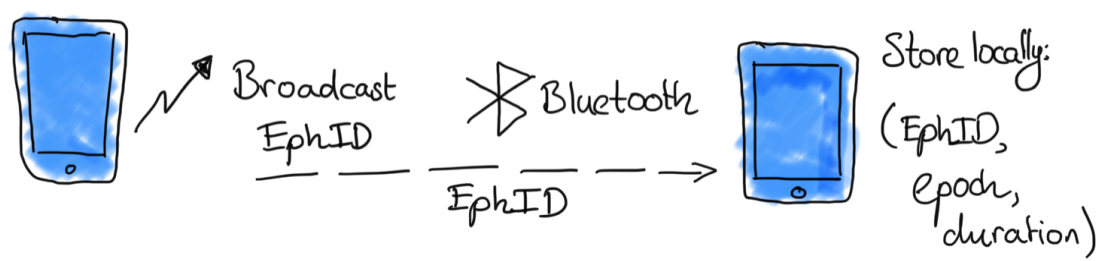 Broadcast
EphID
Bluetooth
EphID
Store locally:
(EphID,
epoch,
duration)